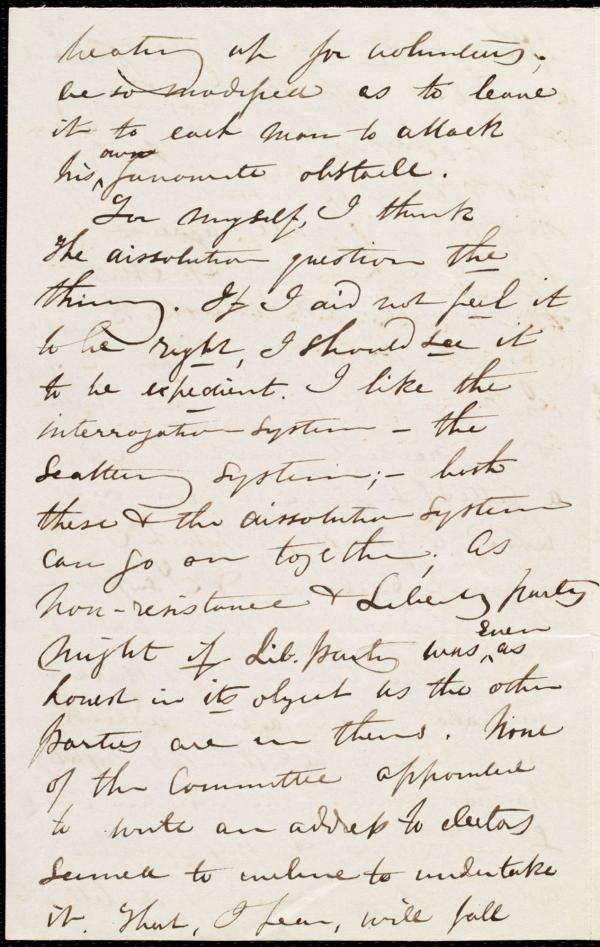 beating up for volunteers,
be so modified as to leave
it to each man to attack
his own favourite obstacle.
For myself, I think
the dissolution question the
thing. If I did not feel it
to be right, I should see it
to be expedient. I like the
interrogation system – the
scattering system; – both
these & the dissolution system
can go on together; As
non-resistance & Liberty party
might if Lib. party was even as
honest in its object as the other
parties are in theirs. None
of the Committee appointed
to write an address to electors
seemed to incline to undertake
it. That, I fear, will fall